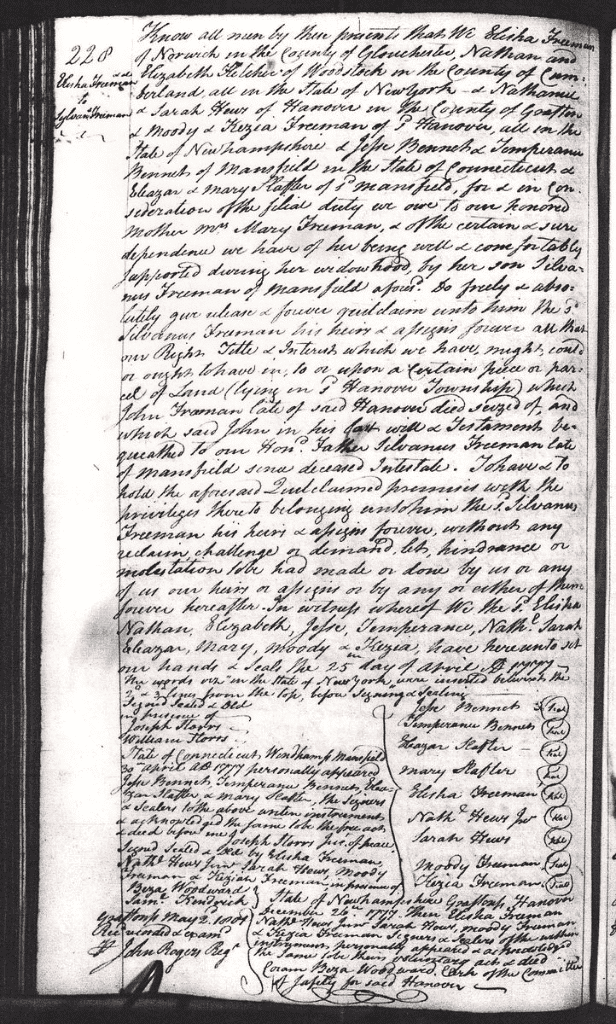 228
Elisha Freeman &c
to
Sylvan Freeman
Know all men by these presents that We Elisha Freeman
of Norwich in the County of Gloucester, Nathan and
Elizabeth Fletcher of Woodstock in the County of Cum-
berland, all in the State of New York - & Nathaniel
& Sarah Hews of Hanover in the County of Grafton
& Moody & Kezia Freeman of sd Hanover, all in the
State of Newhampshire & Jesse Bennet & Temperance
Bennet of Mansfield in the State of Connecticut &
Eleazar & Mary Slafter of sd mansfield, for & in Con-
sideration of the filial duty we owe to our honored
Mother Mrs Mary Freeman, & of the certain & sure
dependence we have of her being well & comfortably
supported during her widowhood, by her son Silva-
nus Freeman of Mansfield aforesd. Do freely & abso-
lutely give release & forever quitclaim unto him the sd
Silvanus Freeman his heirs & assigns forever all that
our Right Title & Interest which we have, might, could
or ought to have in, to or upon a Certain piece or par-
cel of Land (lying in sd Hanover Township) which
John Freeman late of said Hanover died seized of, and
which said John in his last will & Testament be-
queathed to our Hond. Father Silvanus Freeman late
of Mansfield since deceased Intestate. To have & to
hold the aforesaid Quitclaimed premises with the
privileges thereto belonging unto him the sd. Silvanus
Freeman his heirs & assigns forever, without any
reclaim, challenge or demand, let, hindrance or
molestation to be had made or done by us or any
of us our heirs or assigns or by any or either of them
forever hereafter. In witness whereof We the sd. Elisha
Nathan, Elizabeth, Jesse, Temperance, Nathl. Sarah
Eleazar, Mary, Moody & Kezia, have hereunto set
our hands & Seals the 25 day of April AD 1777
The words viz in the State of New York were inserted between the
3d & 3d lines from the top, before Signing & Sealing
Signed Sealed & Dld
in presence of
Joseph Storrs
William Storrs
State of Connecticut, Windham ss Mansfield
30th April AD 1777 personally appeared
Jesse Bennet, Temperance Bennet, Elea-
zar Slafter & Mary Slafter, the Signers
& Sealers to the above written instrument
& acknowledged the same to be their free act
& deed before me Joseph Storrs Jus. of peace
Signed Seald & Dld by Elisha Freeman,
Nathl Hews Junr Sarah Hews, Moody
Freeman & Keziah Freeman in presence of
Beza Woodward
Saml. Kendrick
Jesse Bennet Seal
Temperance Bennet Seal
Eleazar Slafter - Seal
Mary Slafter Seal
Elisha Freeman Seal
Nathl Hews Jur Seal
Sarah Hews Seal
Moody Freeman Seal
Kezia Freeman Seal
Grafton ss May 2. 1801
Recd recorded & examd
pr John Rogers Regr
State of Newhampshire Grafton ss, Hanover
December 26th. 1777. Then Elisha Freeman
Nathl Hews Junr Sarah Hews, Moody Freeman
& Kezia Freeman Signers & Sealers of the within
instrument, personally appeared & acknowledged
the same to be their voluntary act & deed
Coram Beza Woodward, Clerk of the Committee
of Safety for said Hanover -